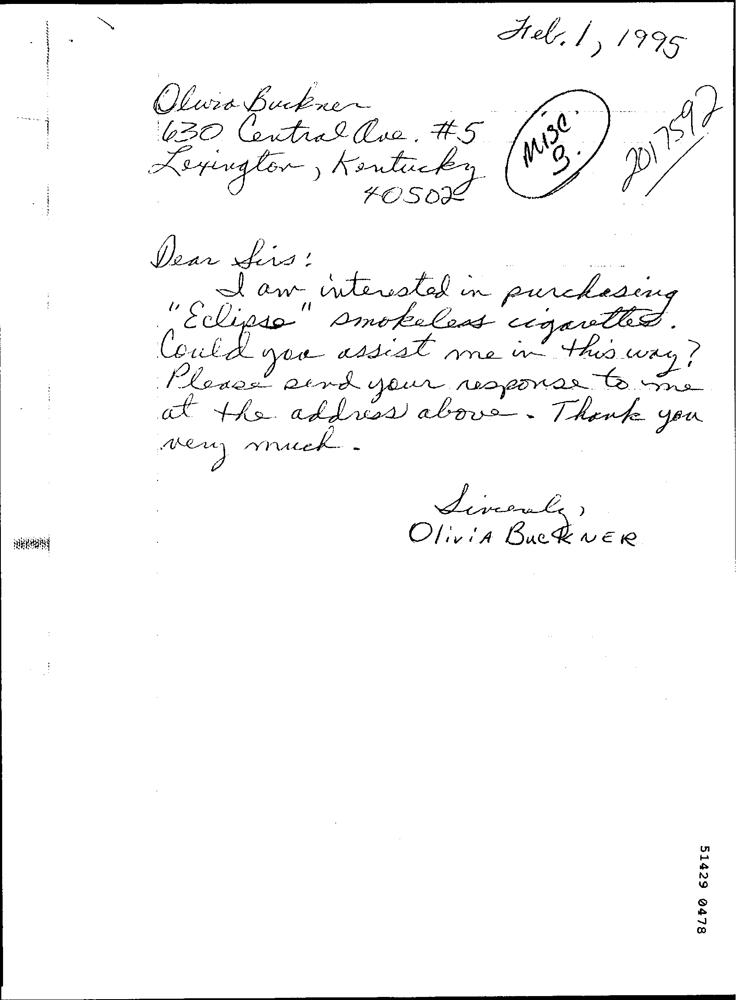 Feb. 1, 1995
Olivia Buckner
630 Central Ave. #5
Lexington, Kentucky
40502
Misc.
3.
2017592
Dear Sirs:
I am interested in purchasing
"Eclipse" smokeless cigarettes.
Could you assist me in this way?
Please send your response to me
at the address above. Thank you
very much.
Sincerely,
OliviA BuckNER
51429 0478